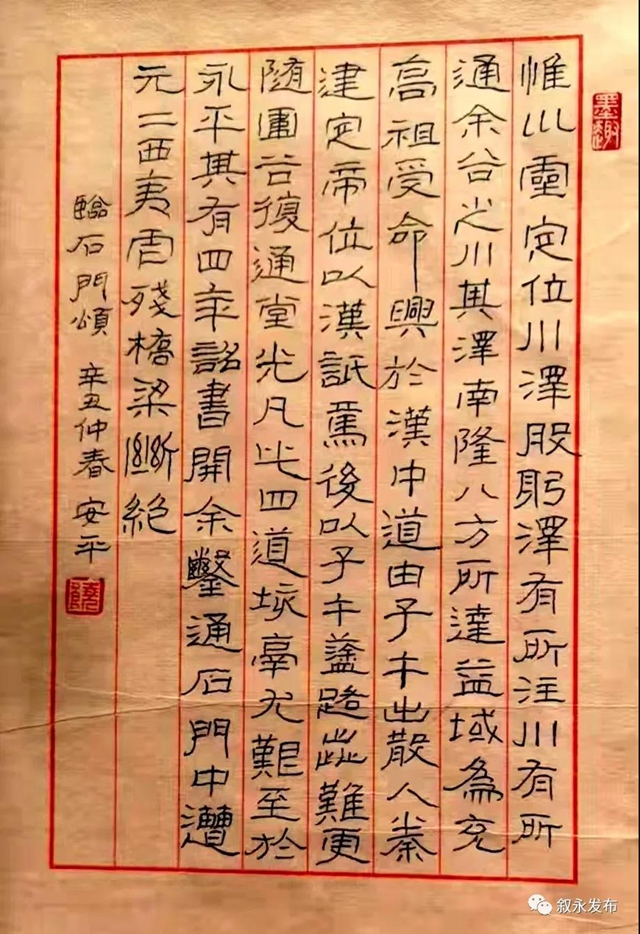 惟巛靈定位川澤股躬澤有所注川有所
通余谷之川其澤南隆八方所達益域為充
高祖受命興於漢中道由子午出散入秦
建定帝位以漢詆焉後以子午塗路歰難更
隨圍谷復通堂光凡此四道垓鬲尤艱至於
永平其有四年詔書開余鑿通石門中遭
元二西夷虐殘橋梁斷絕
臨石門頌 辛丑仲春 安平
叙永发布